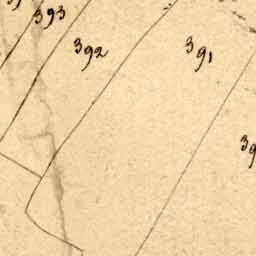 393
392
391